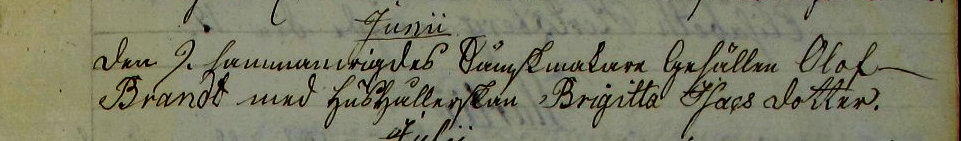 Junii
Den 9. sammanvigdes Sämskmakare Gesällen Olof
Brandt med Hushållerskan Brigitta Isacs dotter.
Julii